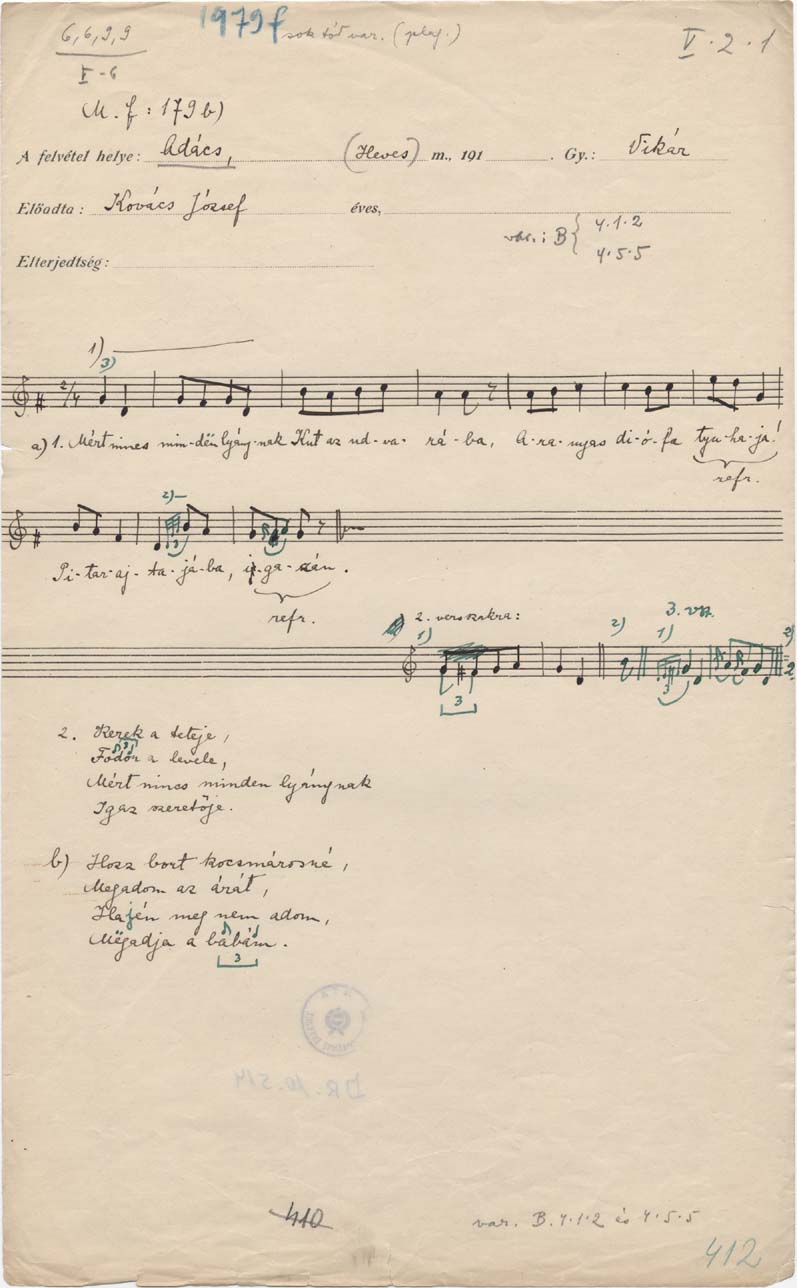 6,6,9,9
V-6
1979f sok tót var. (plag.)
V.2.1
M.f: 179b)
A felvétel helye: Adács, (Heves) m., 191 . Gy.: Vikár
Előadta: Kovács József éves,
var.: B { 4.1.2
4.5.5
Elterjedtség:
1)
3)
2/4
a) 1. Mért nincs min-dën lyány-nak Kut az ud-va-rá-ba, A-ra-nyas di-ó-fa tyu-ha-ja!
refr.
2)
3
Pi-tar-aj-ta-já-ba, i-ga-zán.
refr.
2. versszakra:
1)
3
2)
3. vsz.
1)
3
2)
2. Kerek a teteje,
Fodor a levele,
Mért nincs minden lyánynak
Igaz szeretője.
b) Hosz bort kocsmárosné,
Megadom az árát,
Ha jén meg nem adom,
Mëgadja a babám.
3
DR. 10.514
410
var. B.4.1.2 és 4.5.5
412